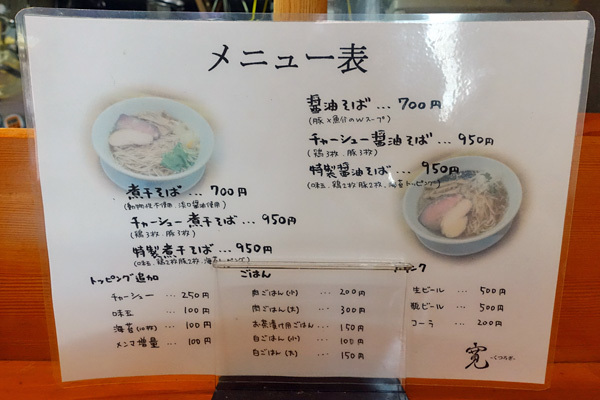 メニュー表
醤油そば … 700円
(豚×魚介のWスープ)
チャーシュー醤油そば … 950円
(鶏3枚、豚3枚)
特製醤油そば … 950円
(味玉、鶏2枚豚2枚、海苔トッピング)
煮干そば … 700円
(動物性不使用、淡口醤油使用)
チャーシュー煮干そば … 950円
(鶏3枚、豚3枚)
特製煮干そば … 950円
(味玉、鶏2枚豚2枚、海苔トッピング)
トッピング追加
チャーシュー … 250円
味玉 … 100円
海苔(10枚) … 100円
メンマ増量 … 100円
ごはん
肉ごはん(小) … 200円
肉ごはん(大) … 300円
お茶漬け用ごはん … 150円
白ごはん(小) … 100円
白ごはん(大) … 150円
ドリンク
生ビール … 500円
瓶ビール … 500円
コーラ … 200円
寛